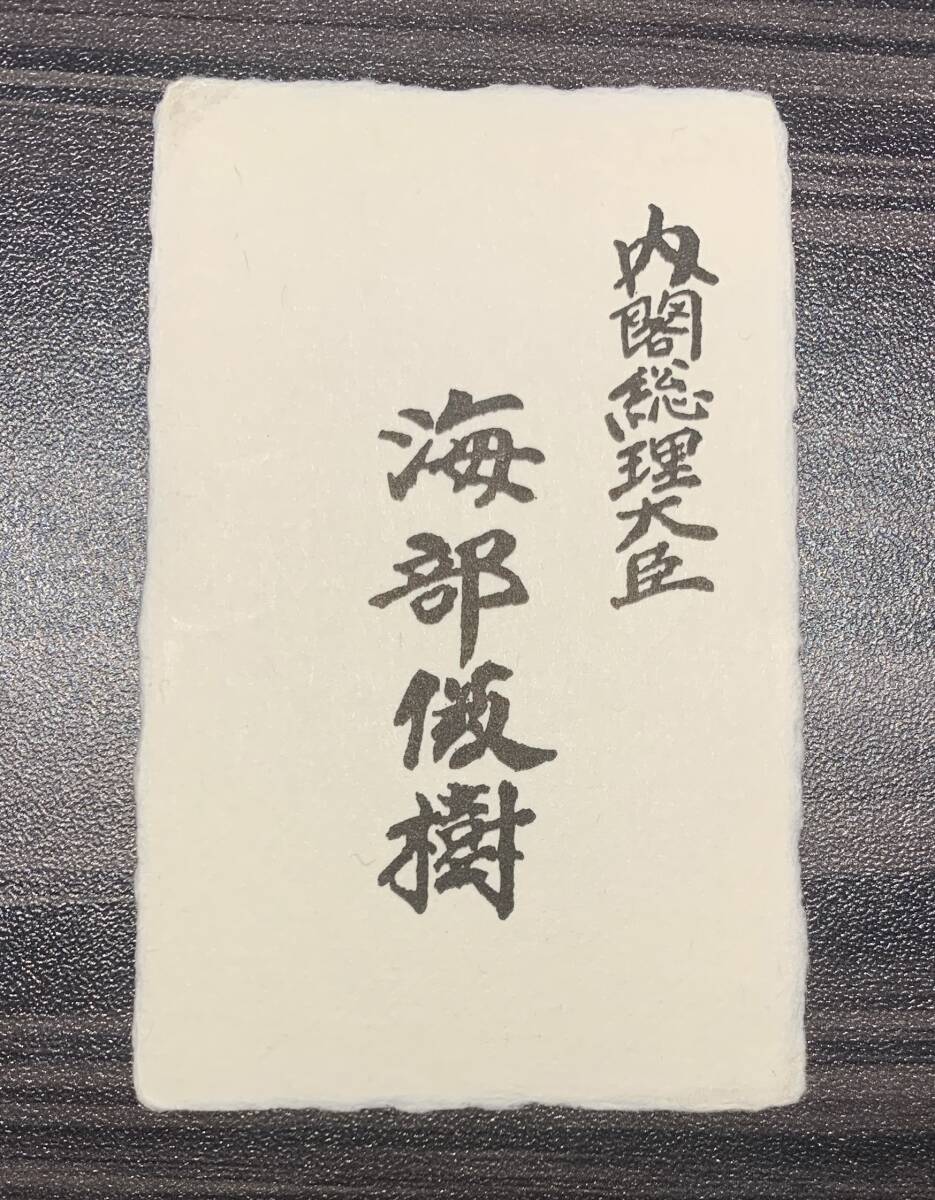 内閣総理大臣
海部俊樹